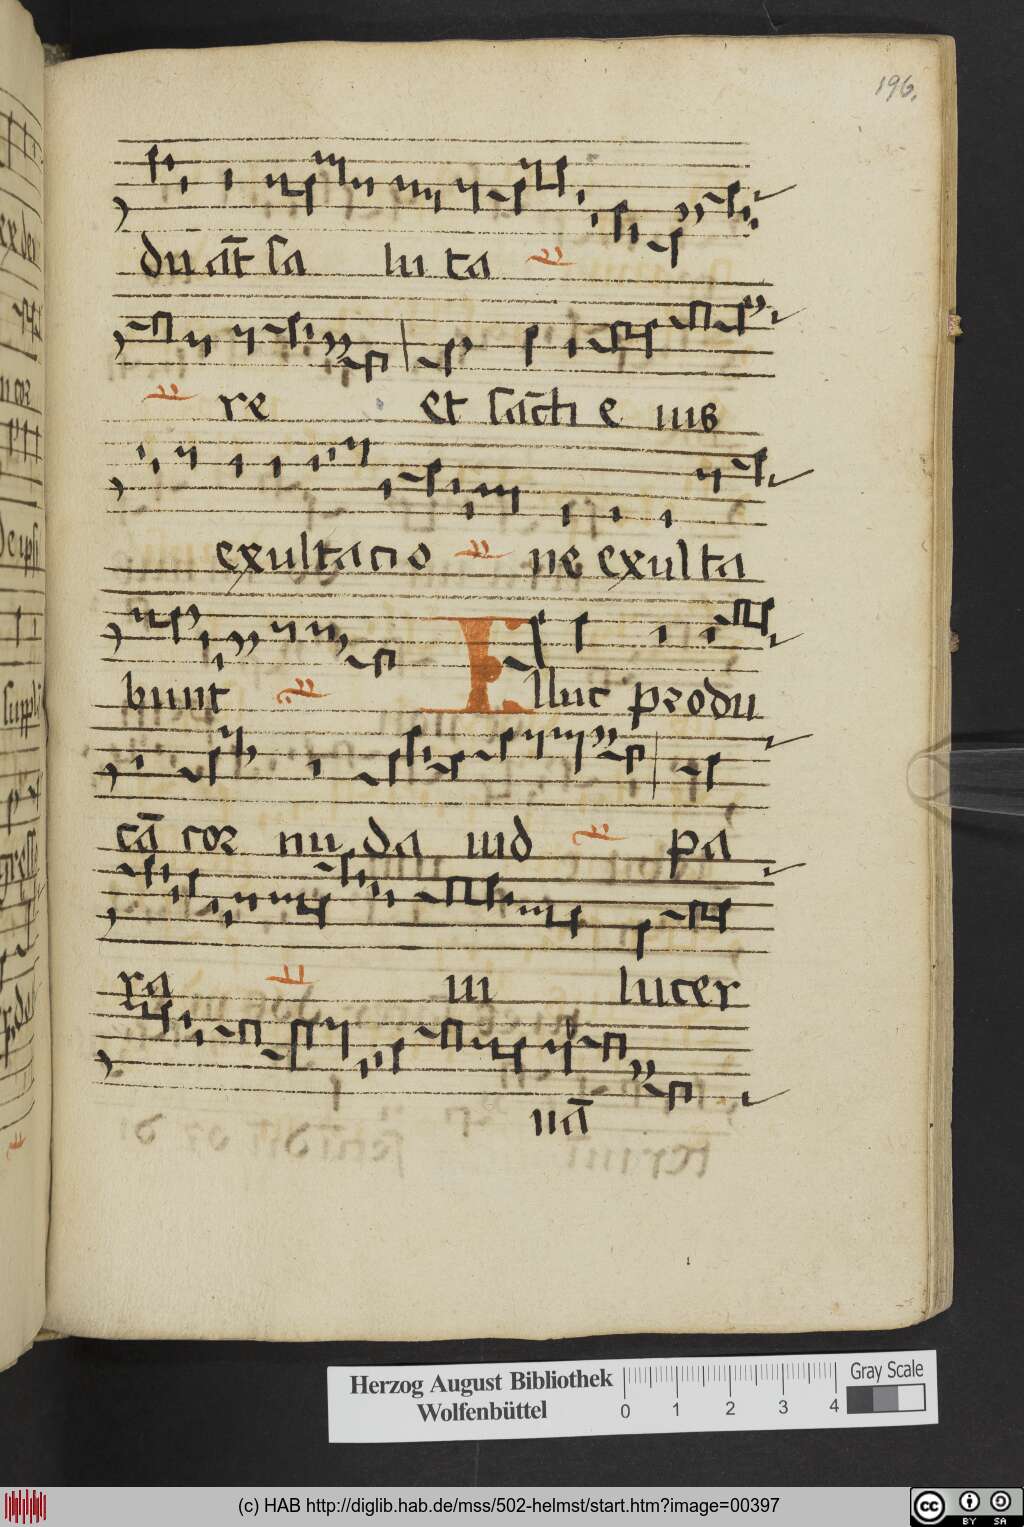 196.
du at̄ sa lu ta
re et sācti e ius
exultacio ne exulta
bunt Illuc produ
cā cor nu da uid pa
ra ui lucer
nā
Herzog August Bibliothek
Wolfenbüttel
0 1 2 3 4
Gray Scale
(c) HAB http://diglib.hab.de/mss/502-helmst/start.htm?image=00397
cc BY SA